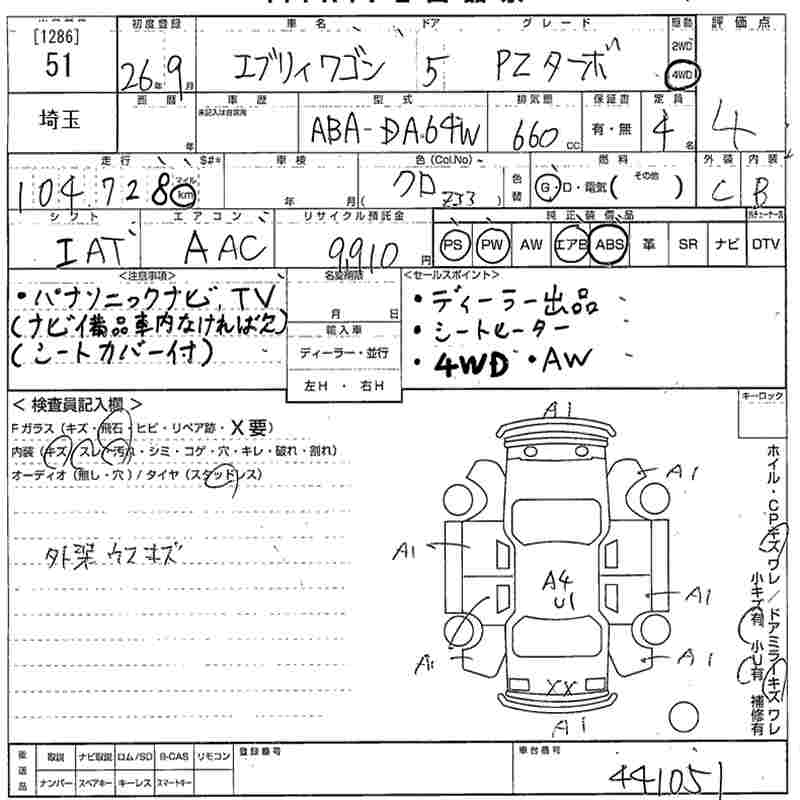 [1286]
51
初度登録 車名 ドア グレード 駆動 評価点
26年 9月 エブリィワゴン 5 PZターボ 2WD 4WD
埼玉 西暦 車歴 型式 排気量 保証書 定員 4
未記入は自家用
年 ABA-DA64W 660cc 有・無 4名
走行 $#* 車検 色(Col.No) 燃料 外装 内装
104,728 マイル km 年 月 クロ(Z33) 色替 G・D・電気(その他) C B
シフト エアコン リサイクル預託金 純正装備品
IAT AAC 9,910円 PS PW AW エアB ABS 革 SR ナビ DTV
<注意事項> 名変期限 <セールスポイント>
・パナソニックナビ,TV ・ディーラー出品
(ナビ備品車内なければ欠) 月 日 ・シートヒーター
(シートカバー付) 輸入車 ・4WD ・AW
ディーラー・並行
左H・右H
<検査員記入欄> キーロック
Fガラス(キズ・飛石・ヒビ・リペア跡・X要)
内装(キズ・スレ・汚れ・シミ・コゲ・穴・キレ・破れ・割れ)
オーディオ(無し・穴)/タイヤ(スタッドレス)
外装 ウスキズ
A1
A1
A1
A4
U1
A1
A1
A1
XX
A1
ホイル・CPキズワレ/ドアミラーキズワレ
小キズ有 小U有 補修有
後送品 取説 ナビ取説 ロム/SD B-CAS リモコン 登録番号 車台番号
ナンバー スペアキー キーレス スマートキー 441051